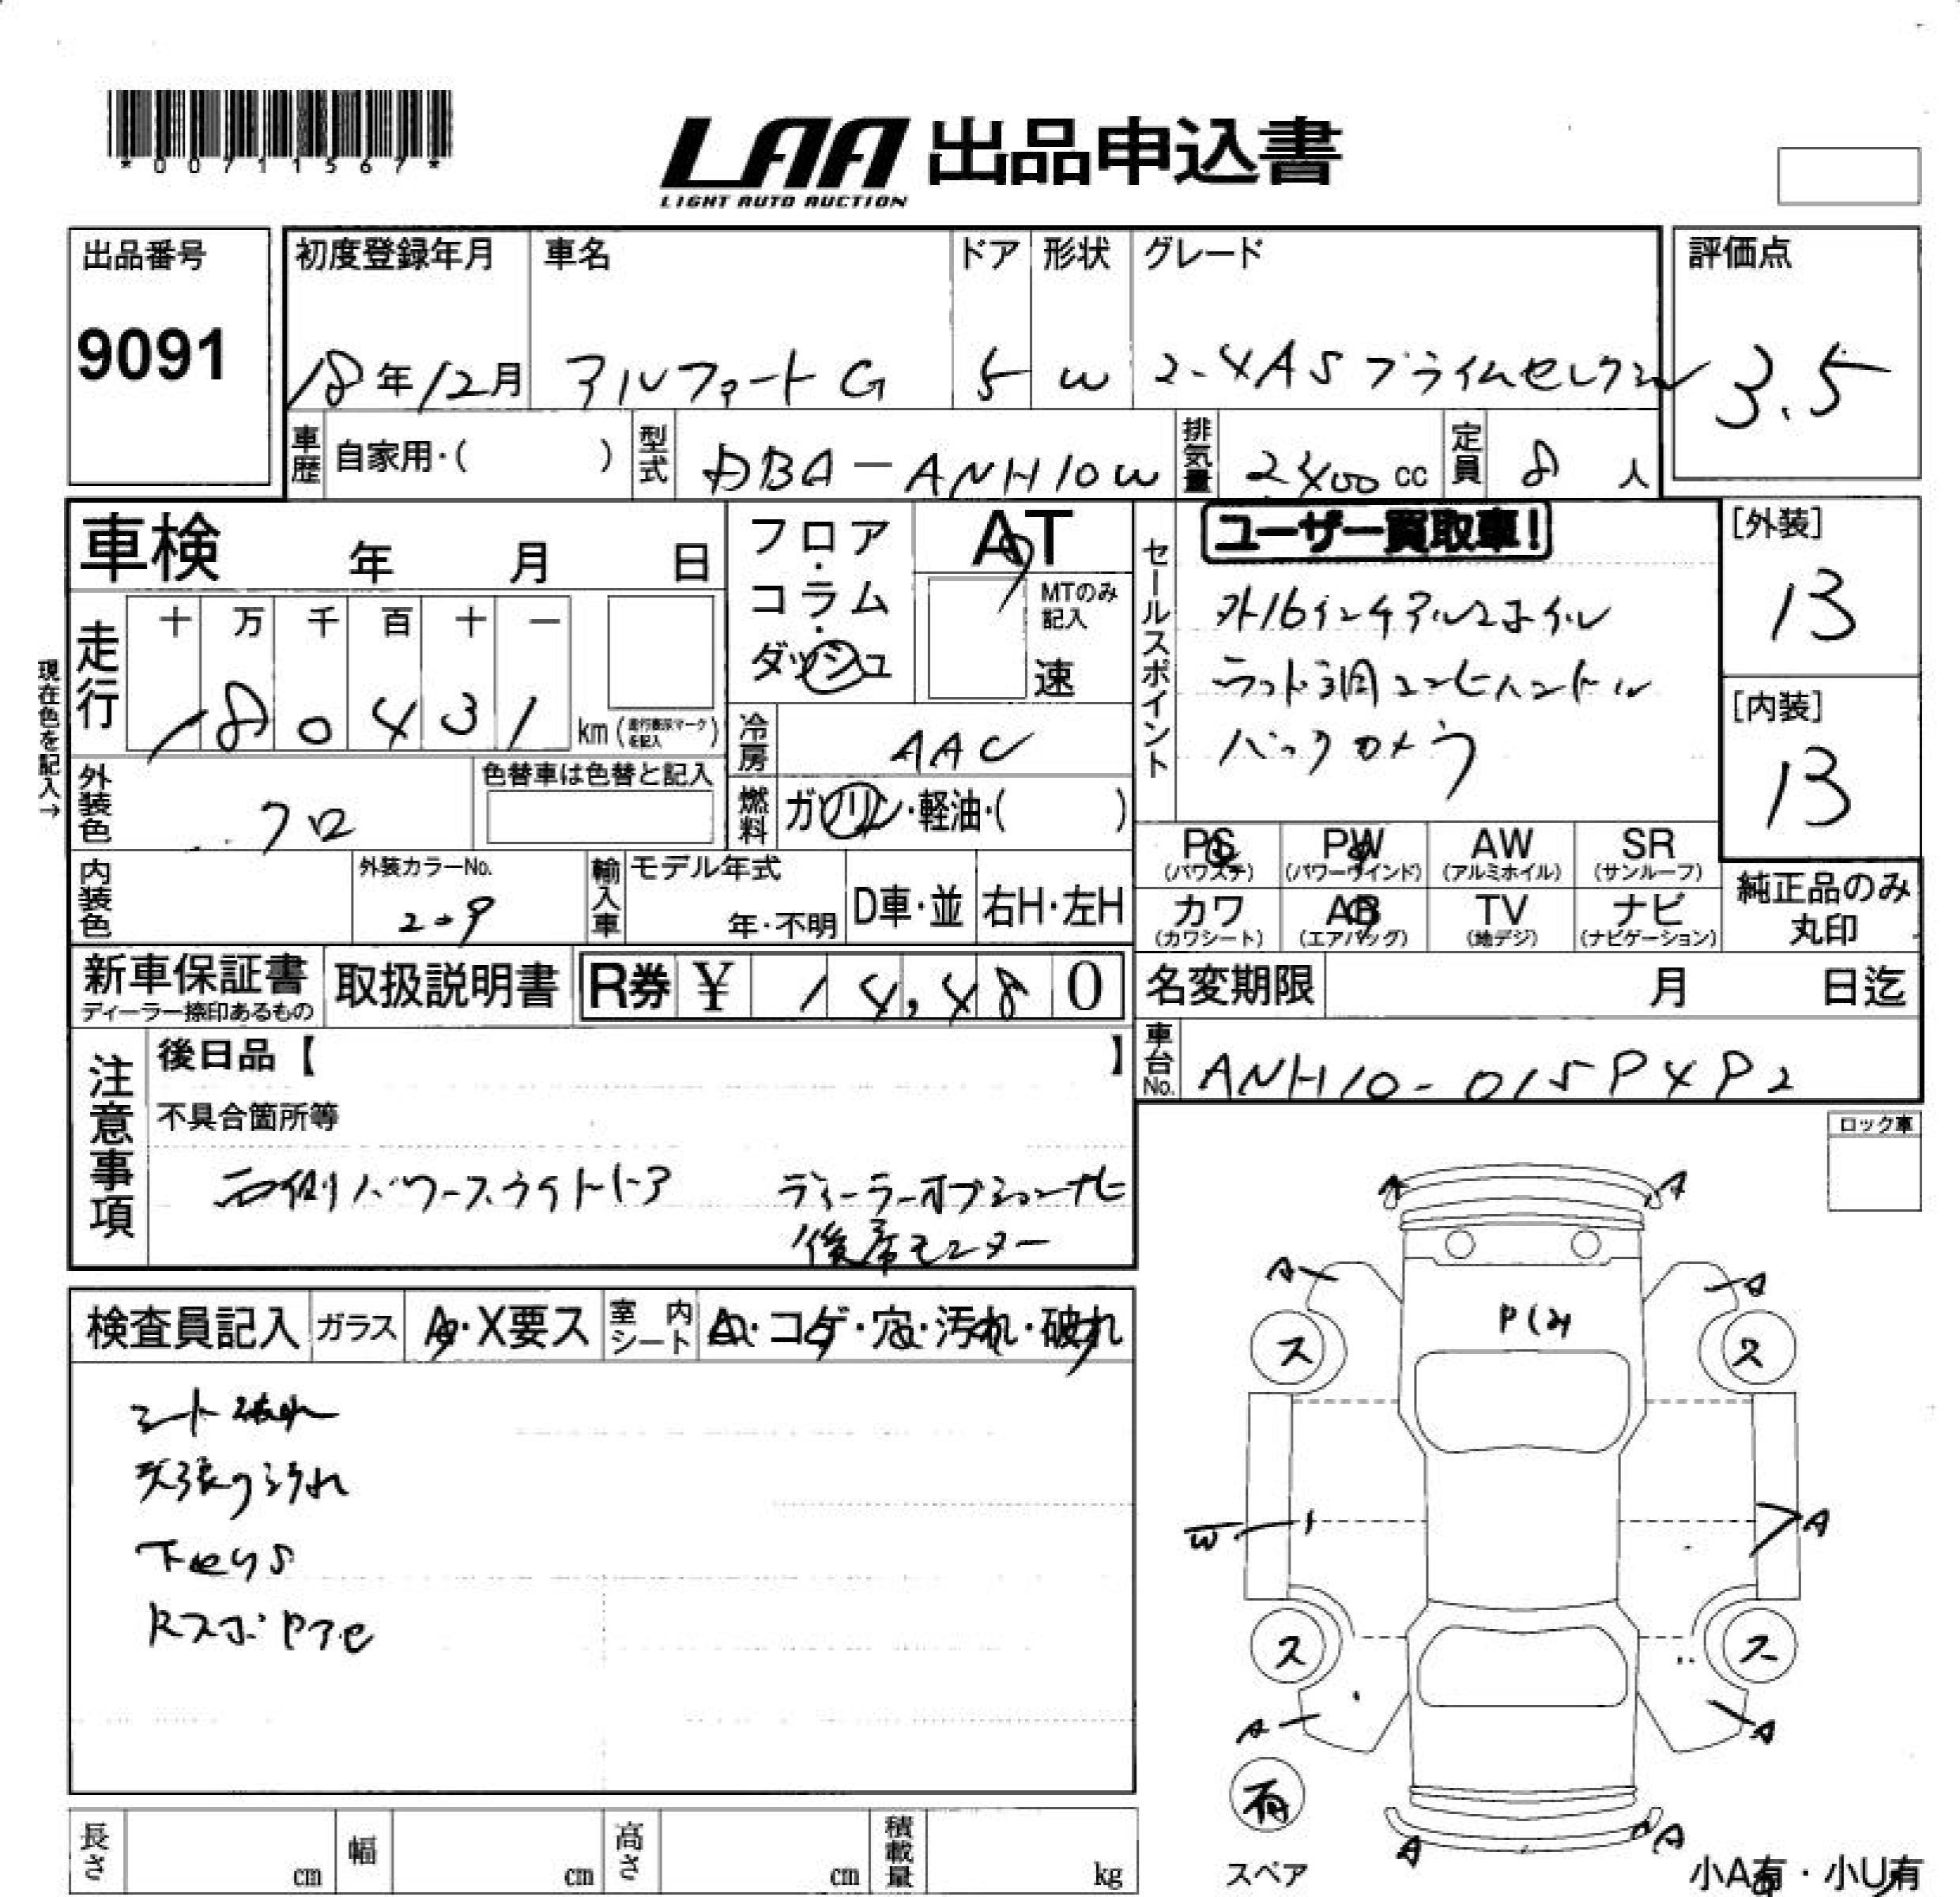 *00711567*
LAA 出品申込書
LIGHT AUTO AUCTION
出品番号
9091
初度登録年月
18年12月
車名
アルファードG
ドア
5
形状
W
グレード
2.4AS プライムセレクション
評価点
3.5
車歴
自家用・( )
型式
DBA-ANH10W
排気量
2400 cc
定員
8 人
車検 年 月 日
フロア・コラム・ダッシュ
AT
MTのみ記入
速
セールスポイント
ユーザー買取車!
外16インチアルミホイル
ウッド調コンビハンドル
バックカメラ
[外装]
13
[内装]
13
現在色を記入→
走行
十 万 千 百 十 一
180431
km(走行表示マークを記入)
冷房
AAC
外装色
クロ
色替車は色替と記入
燃料
ガソリン・軽油・( )
PS
(パワステ)
PW
(パワーウインド)
AW
(アルミホイル)
SR
(サンルーフ)
内装色
外装カラーNo.
209
輸入車
モデル年式
年・不明
D車・並
右H・左H
カワ
(カワシート)
AB
(エアバッグ)
TV
(地デジ)
ナビ
(ナビゲーション)
純正品のみ丸印
新車保証書
ディーラー捺印あるもの
取扱説明書
R券 ¥ 14,480
名変期限 月 日迄
車台No.
注意事項
後日品【 】
不具合箇所等
右側パワースライドドア
ディーラーオプションナビ
後席モニター
ロック車
検査員記入
ガラス
A・X要ス
室内シート
・コゲ・穴・汚れ・破れ
シート破れ
天張り汚れ
A A
A A
ス ス
W A
ス ス
A A
有
スペア
A A
小A有・小U有
長さ cm
幅 cm
高さ cm
積載量 kg